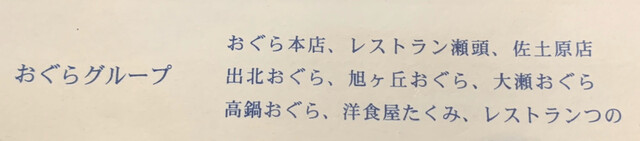 おぐらグループ
おぐら本店、レストラン瀬頭、佐土原店
出北おぐら、旭ヶ丘おぐら、大瀬おぐら
高鍋おぐら、洋食屋たくみ、レストランつの